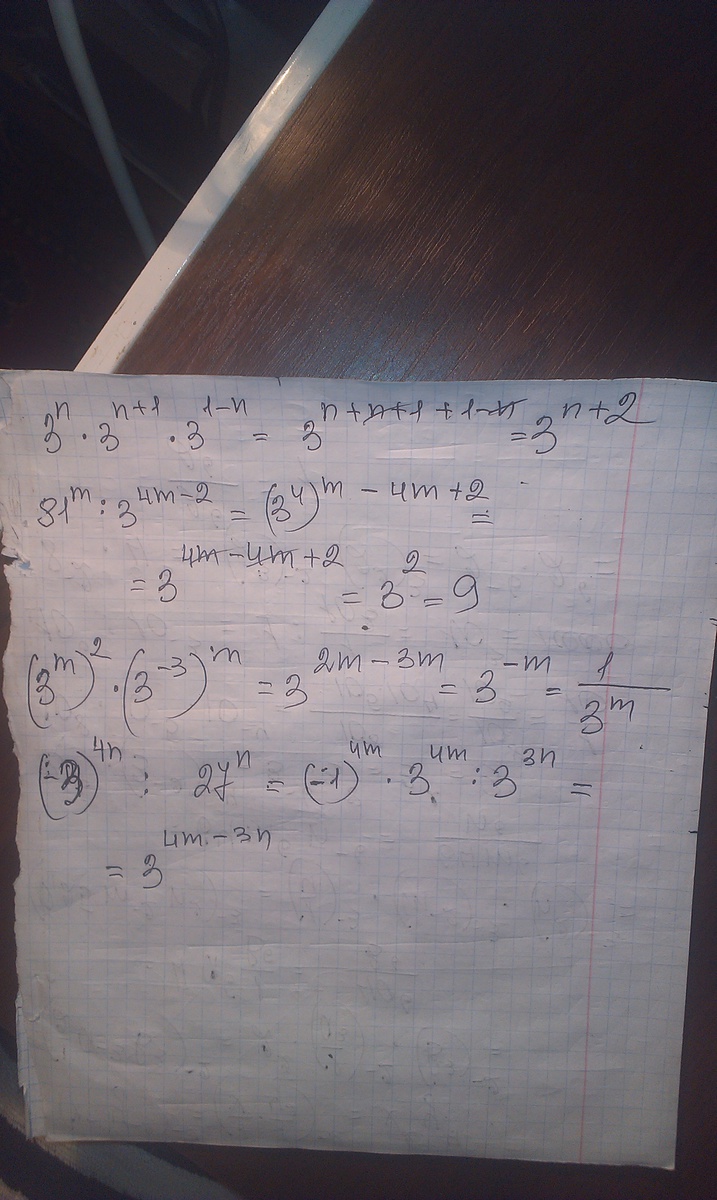 3ⁿ · 3ⁿ⁺¹ · 3¹⁻ⁿ = 3ⁿ⁺ⁿ⁺¹⁺¹⁻ⁿ = 3ⁿ⁺²
81ᵐ : 3⁴ᵐ⁻² = (3⁴)ᵐ ⁻ ⁴ᵐ⁺² =
= 3⁴ᵐ⁻⁴ᵐ⁺² = 3² = 9
(3ᵐ)² · (3⁻³)ᵐ = 3²ᵐ⁻³ᵐ = 3⁻ᵐ = 1/3ᵐ
(-3)⁴ⁿ : 27ⁿ = (-1)⁴ᵐ · 3⁴ᵐ : 3³ⁿ =
= 3⁴ᵐ⁻³ⁿ